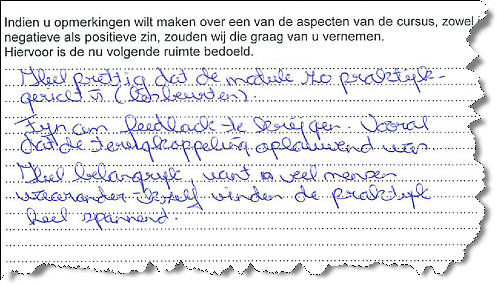 Indien u opmerkingen wilt maken over een van de aspecten van de cursus, zowel i
negatieve als positieve zin, zouden wij die graag van u vernemen.
Hiervoor is de nu volgende ruimte bedoeld.
Heel prettig dat de module zo praktijk-
gericht is (lesbeurten).
Fijn om feedback te krijgen. Vooral
dat de terugkoppeling opbouwend was
Heel belangrijk, want veel mensen
waaronder ikzelf vinden de praktijk
heel spannend.